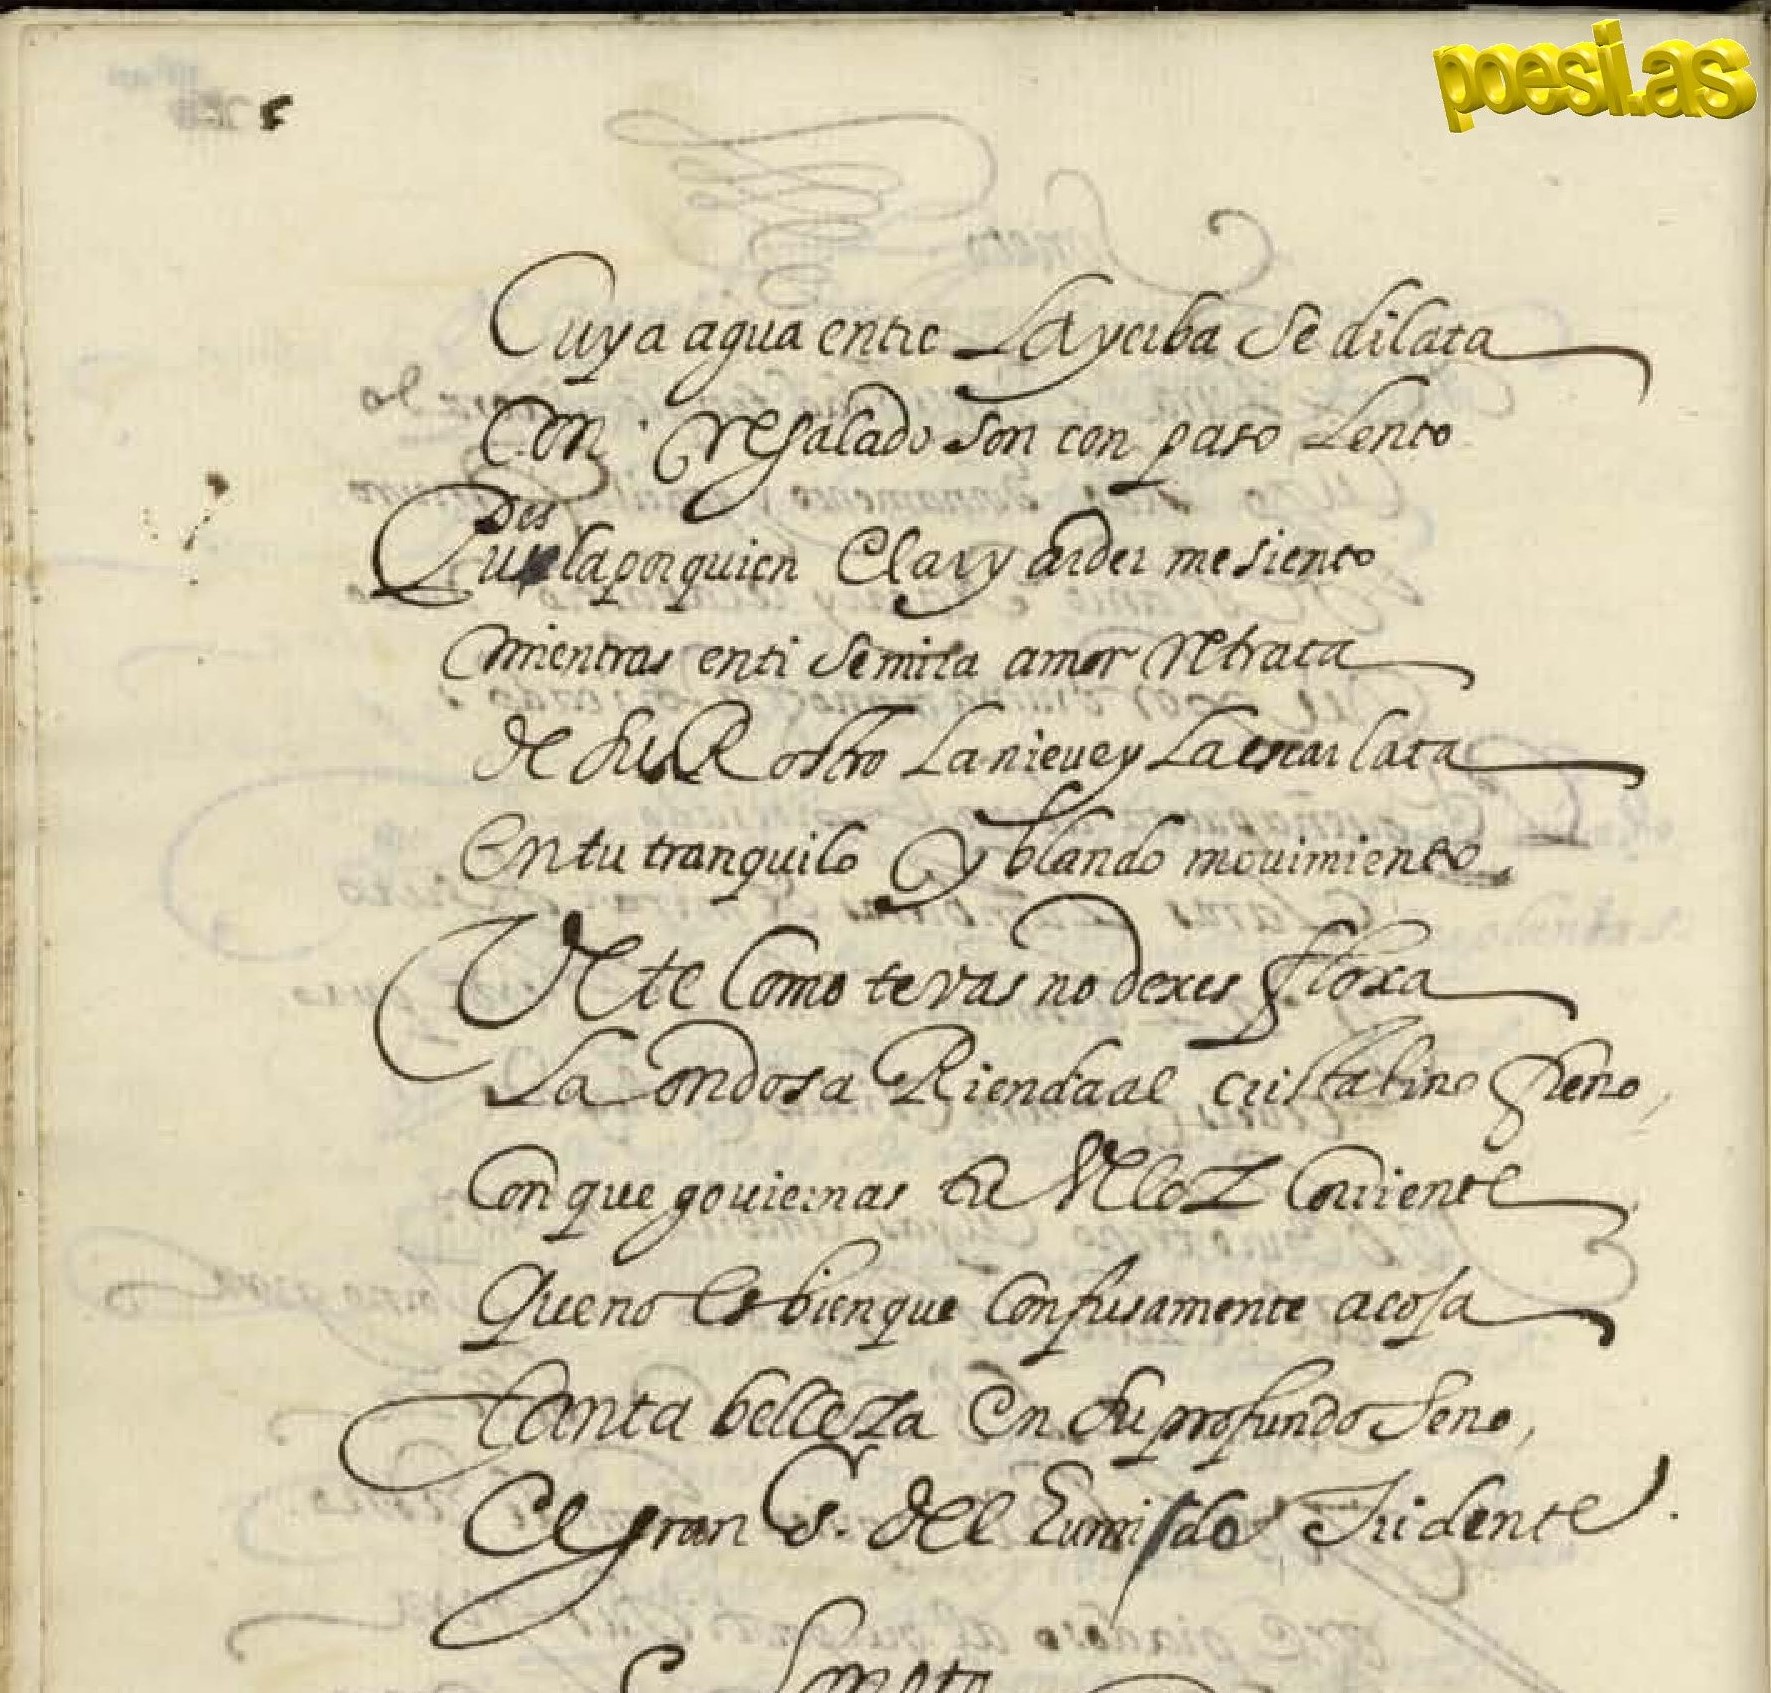 poesi.as
Cuya agua entre la yerba se dilata
Con regalado son con paso lento
Pues
la por quien elar y arder me siento
mientras enti se mira amor retrata
de su Rostro la nieue y la escarlata
en tu tranquilo y blando mouimiento,
Vete como te vas no dexes floxa
La ondosa Rienda al cristalino freno,
Con que gouiernas tu Veloz Corriente
Que no es bien que confusamente acoja
tanta belleza en su profundo seno,
el gran S. del humido Tridente.
Soneto